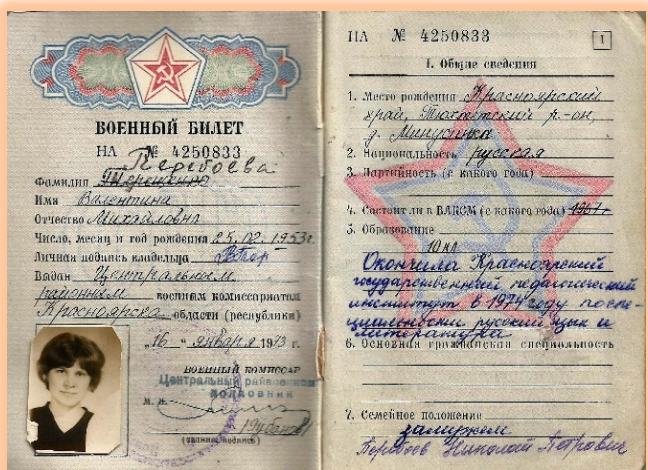 ВОЕННЫЙ БИЛЕТ
НА № 4250833
Перебоева
Фамилия Терещенко
Имя Валентина
Отчество Михайловна
Число, месяц и год рождения 25.02.1953г.
Личная подпись владельца
Выдан Центральным
районным военным комиссариатом
Красноярска области (республики)
„16“ января 1973 г.
ВОЕННЫЙ КОМИССАР
Центральный райвоенком
полковник
М. П.
НА № 4250833
1
I. Общие сведения
1. Место рождения Красноярский
край, Тюхтетский р-он,
д.
2. Национальность русская
3. Партийность (с какого года)
4. Состоит ли в ВЛКСМ (с какого года) 1967г
5. Образование
10 кл
Окончила Красноярский
государственный педагогический
институт в 1974 году по спе-
циальности русский язык и
литература
6. Основная гражданская специальность
7. Семейное положение
замужем
Перебоев Николай Петрович